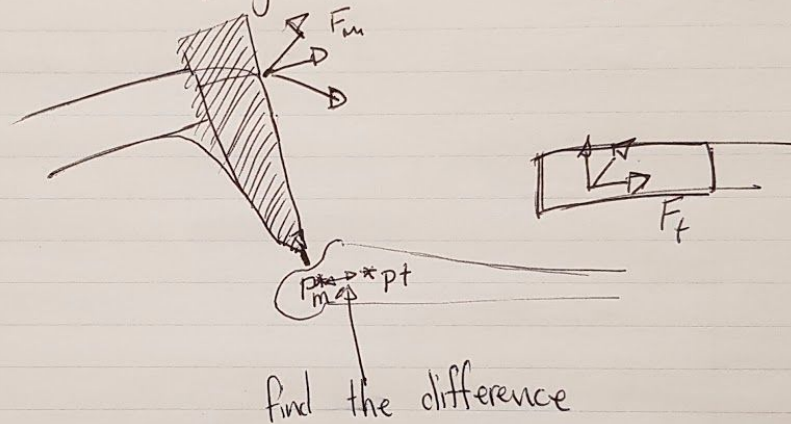 Fm
Ft
pm pt
find the difference